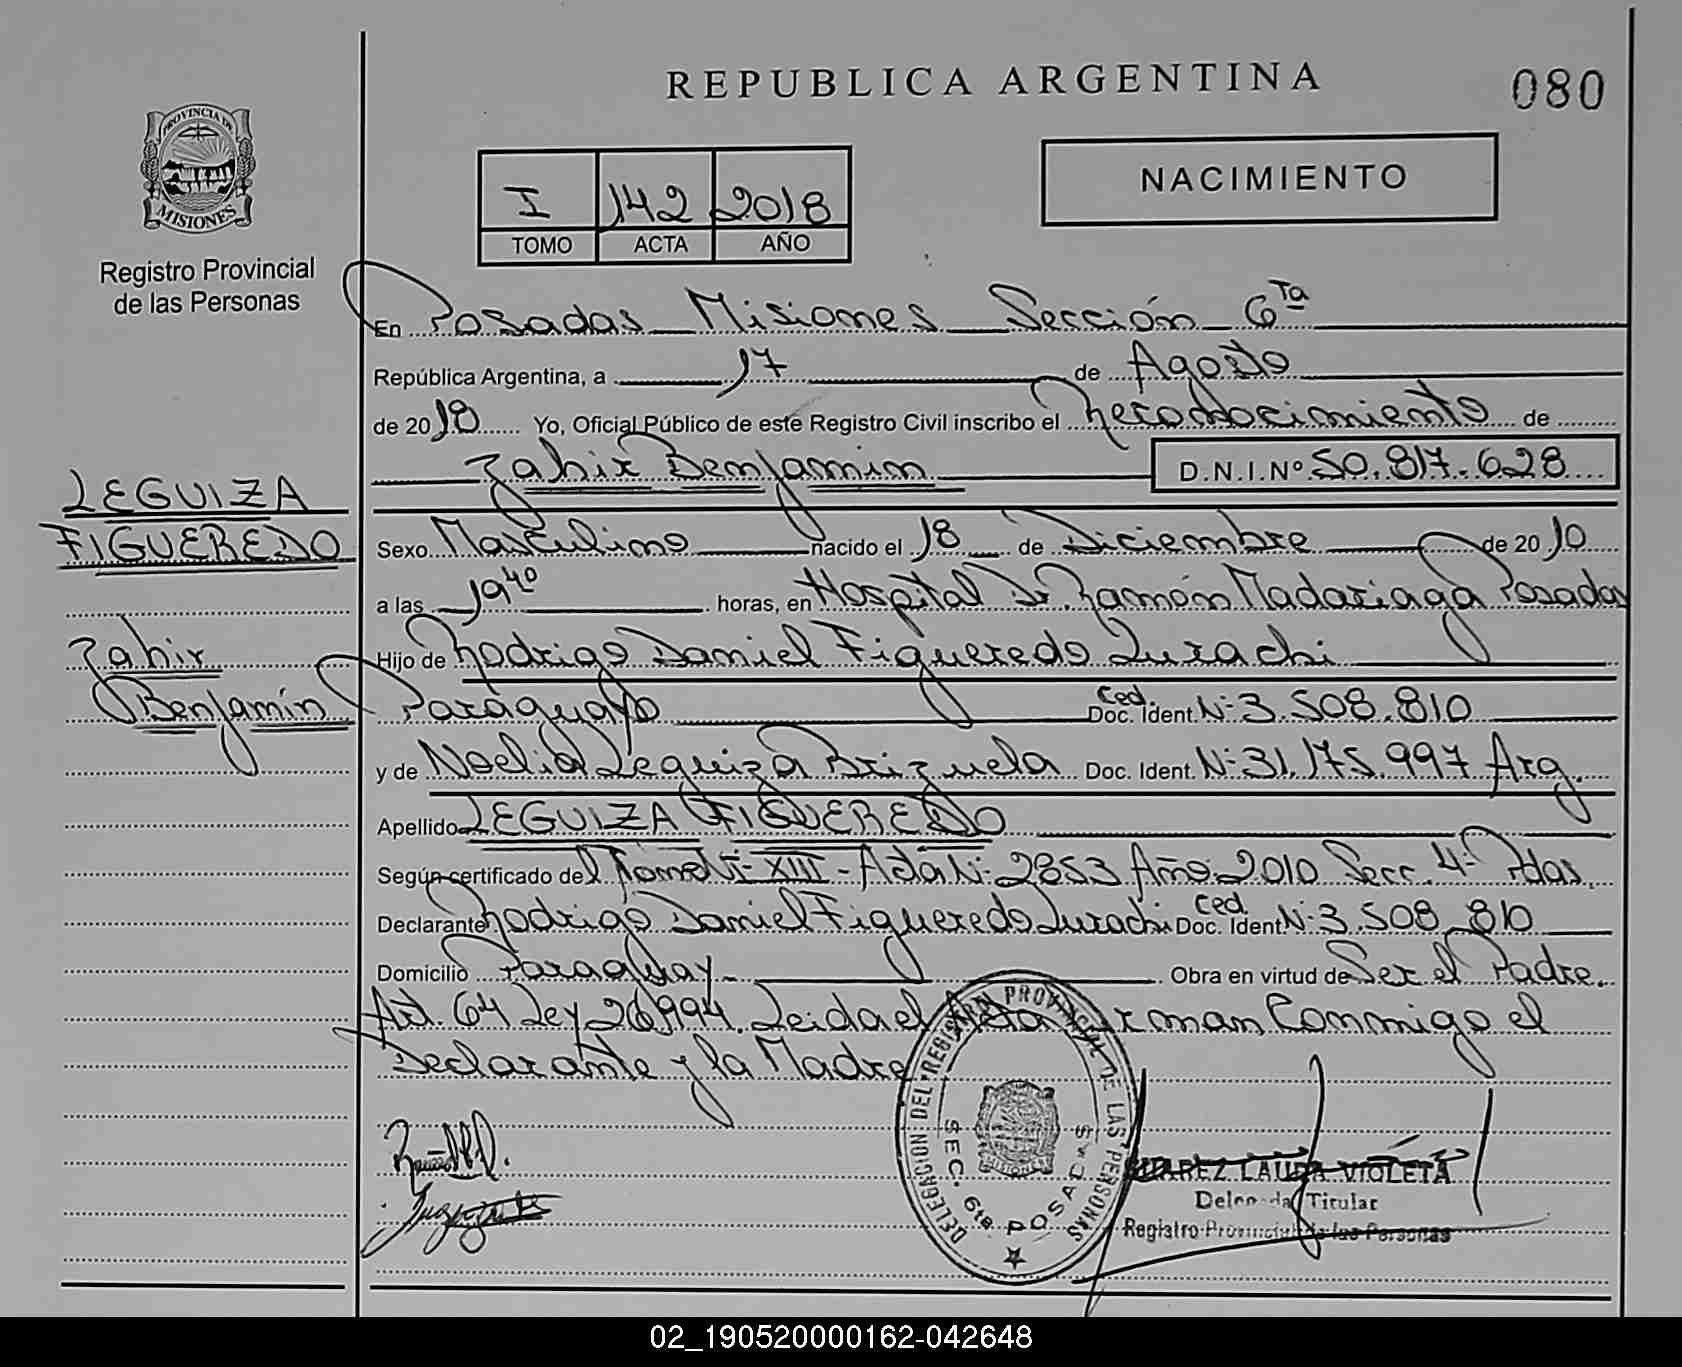 REPUBLICA ARGENTINA
080
PROVINCIA DE
MISIONES
Registro Provincial
de las Personas
I 142 2018
TOMO ACTA AÑO
NACIMIENTO
En Posadas Misiones Sección 6ta
República Argentina, a 17 de Agosto
de 2018 Yo, Oficial Público de este Registro Civil inscribo el Reconocimiento de
Zahir Benjamin D.N.I.Nº 50.817.628
LEGUIZA
FIGUEREDO
Zahir
Benjamín
Sexo Masculino nacido el 18 de Diciembre de 2010
a las 19 40 horas, en Hospital Dr. Ramón Madariaga Posadas
Hijo de Rodrigo Daniel Figueredo Lurachi
Paraguayo Ced. Doc. Ident. Nº 3.508.810
y de Noelia Leguiza Brizuela Doc. Ident. Nº 31.175.997 Arg.
Apellido LEGUIZA FIGUEREDO
Según certificado del Tomo XIII - Acta Nº 2853 Año 2010 Secc. 4ª Pdas.
Declarante Rodrigo Daniel Figueredo Lurachi Ced. Doc. Ident. Nº 3.508.810
Domicilio Paraguay Obra en virtud de Ser el Padre.
Art. 64 Ley 26.994. Leida el Acta Firman Conmigo el
Declarante y la Madre
DELEGACION DEL REGISTRO PROVINCIAL DE LAS PERSONAS
SEC. 6ta POSADAS
MISIONES
SUAREZ LAURA VIOLETA
Delegada Titular
Registro Provincial de las Personas
02_190520000162-042648